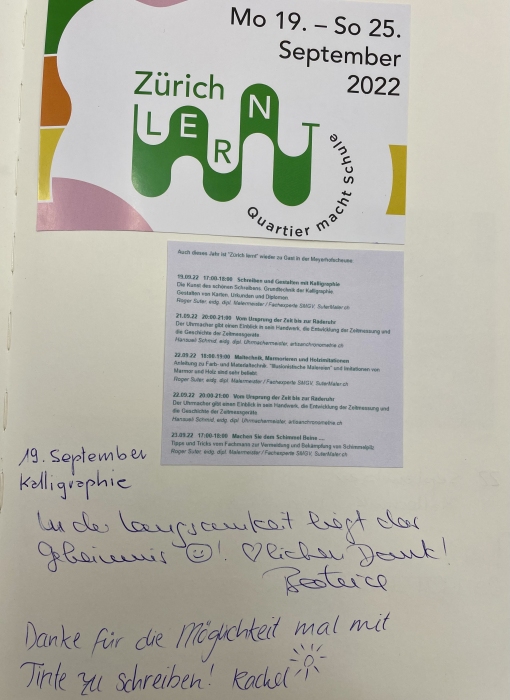 Mo 19. – So 25.
September
2022
Zürich
LERNT
Quartier macht Schule
Auch dieses Jahr ist "Zürich lernt" wieder zu Gast in der Meyerhofscheune.
19.09.22 17:00-18:00 Schreiben und Gestalten mit Kalligraphie
Die Kunst des schönen Schreibens. Grundtechnik der Kalligraphie.
Gestalten von Karten, Urkunden und Diplomen.
Roger Suter, eidg. dipl. Malermeister / Fachexperte SMGV, SuterMaler.ch
21.09.22 20:00-21:00 Vom Ursprung der Zeit bis zur Räderuhr
Der Uhrmacher gibt einen Einblick in sein Handwerk, die Entwicklung der Zeitmessung und
die Geschichte der Zeitmessgeräte
Hansueli Schmid, eidg. dipl. Uhrmachermeister, artisanchronometrie.ch
22.09.22 18:00-19:00 Maltechnik, Marmorieren und Holzimitationen
Anleitung zu Farb- und Materialtechnik. "Illusionistische Malereien" und Imitationen von
Marmor und Holz sind sehr beliebt.
Roger Suter, eidg. dipl. Malermeister / Fachexperte SMGV, SuterMaler.ch
22.09.22 20:00-21:00 Vom Ursprung der Zeit bis zur Räderuhr
Der Uhrmacher gibt einen Einblick in sein Handwerk, die Entwicklung der Zeitmessung und
die Geschichte der Zeitmessgeräte
Hansueli Schmid, eidg. dipl. Uhrmachermeister, artisanchronometrie.ch
23.09.22 17:00-18:00 Machen Sie dem Schimmel Beine ...
Tipps und Tricks vom Fachmann zur Vermeidung und Bekämpfung von Schimmelpilz
Roger Suter, eidg. dipl. Malermeister / Fachexperte SMGV, SuterMaler.ch
19. September
Kalligraphie
In der Langsamkeit liegt das
Geheimnis ☺! ♡lichen Dank!
Beatrice
Danke für die Möglichkeit mal mit
Tinte zu schreiben! Rachel